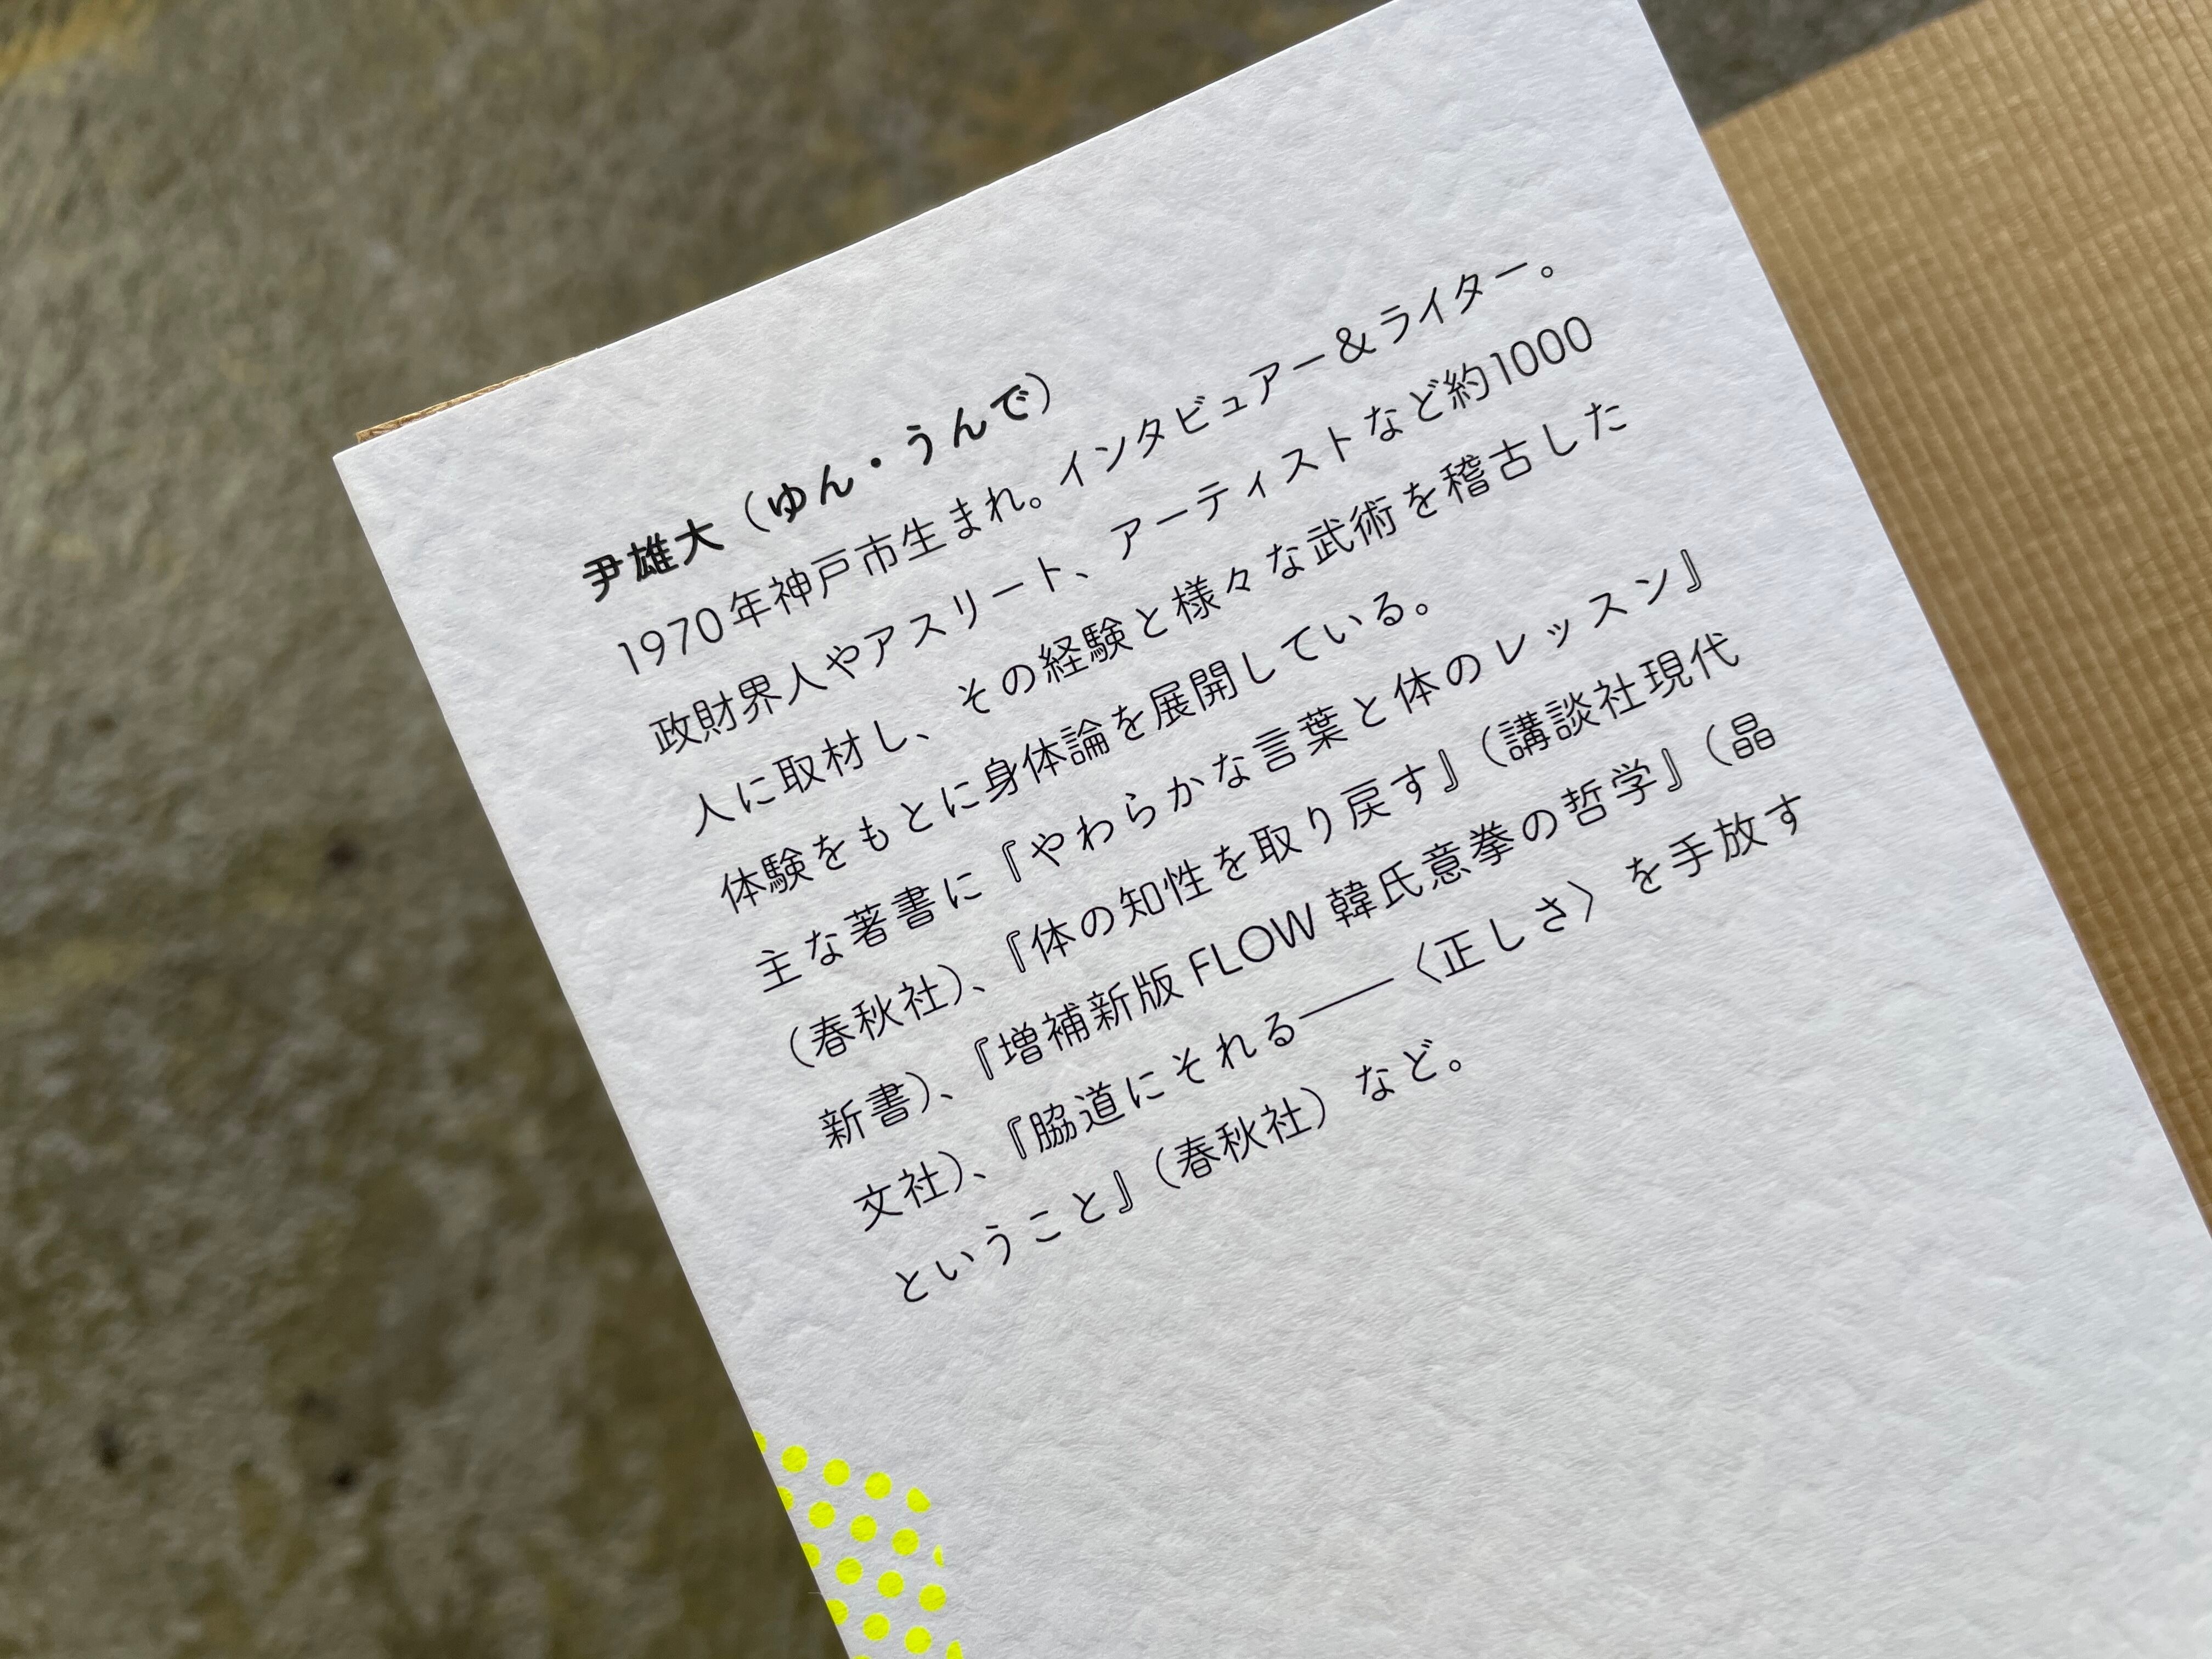 尹雄大（ゆん・うんで）
1970年神戸市生まれ。インタビュアー＆ライター。
政財界人やアスリート、アーティストなど約1000
人に取材し、その経験と様々な武術を稽古した
体験をもとに身体論を展開している。
主な著書に『やわらかな言葉と体のレッスン』
（春秋社）、『体の知性を取り戻す』（講談社現代
新書）、『増補新版 FLOW 韓氏意拳の哲学』（晶
文社）、『脇道にそれる――〈正しさ〉を手放す
ということ』（春秋社）など。